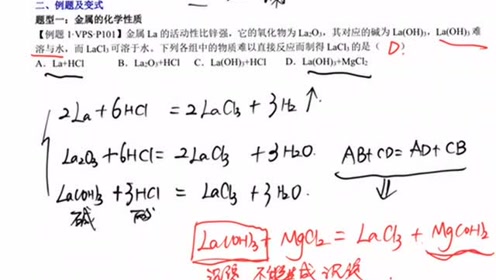 二、例题及变式
题型一：金属的化学性质
【例题 1-VPS-P101】金属 La 的活动性比锌强，它的氧化物为 La₂O₃，其对应的碱为 La(OH)₃，La(OH)₃ 难
溶与水，而 LaCl₃ 可溶于水，下列各组中的物质难以直接反应而制得 LaCl₃ 的是（ D ）
A．La+HCl B．La₂O₃+HCl C．La(OH)₃+HCl D．La(OH)₃+MgCl₂
2La + 6HCl = 2LaCl₃ + 3H₂ ↑
La₂O₃ + 6HCl = 2LaCl₃ + 3H₂O.
AB+CD = AD + CB
La(OH)₃ + 3HCl = LaCl₃ + 3H₂O.
碱 酸
La(OH)₃ + MgCl₂ = LaCl₃ + Mg(OH)₂
沉淀